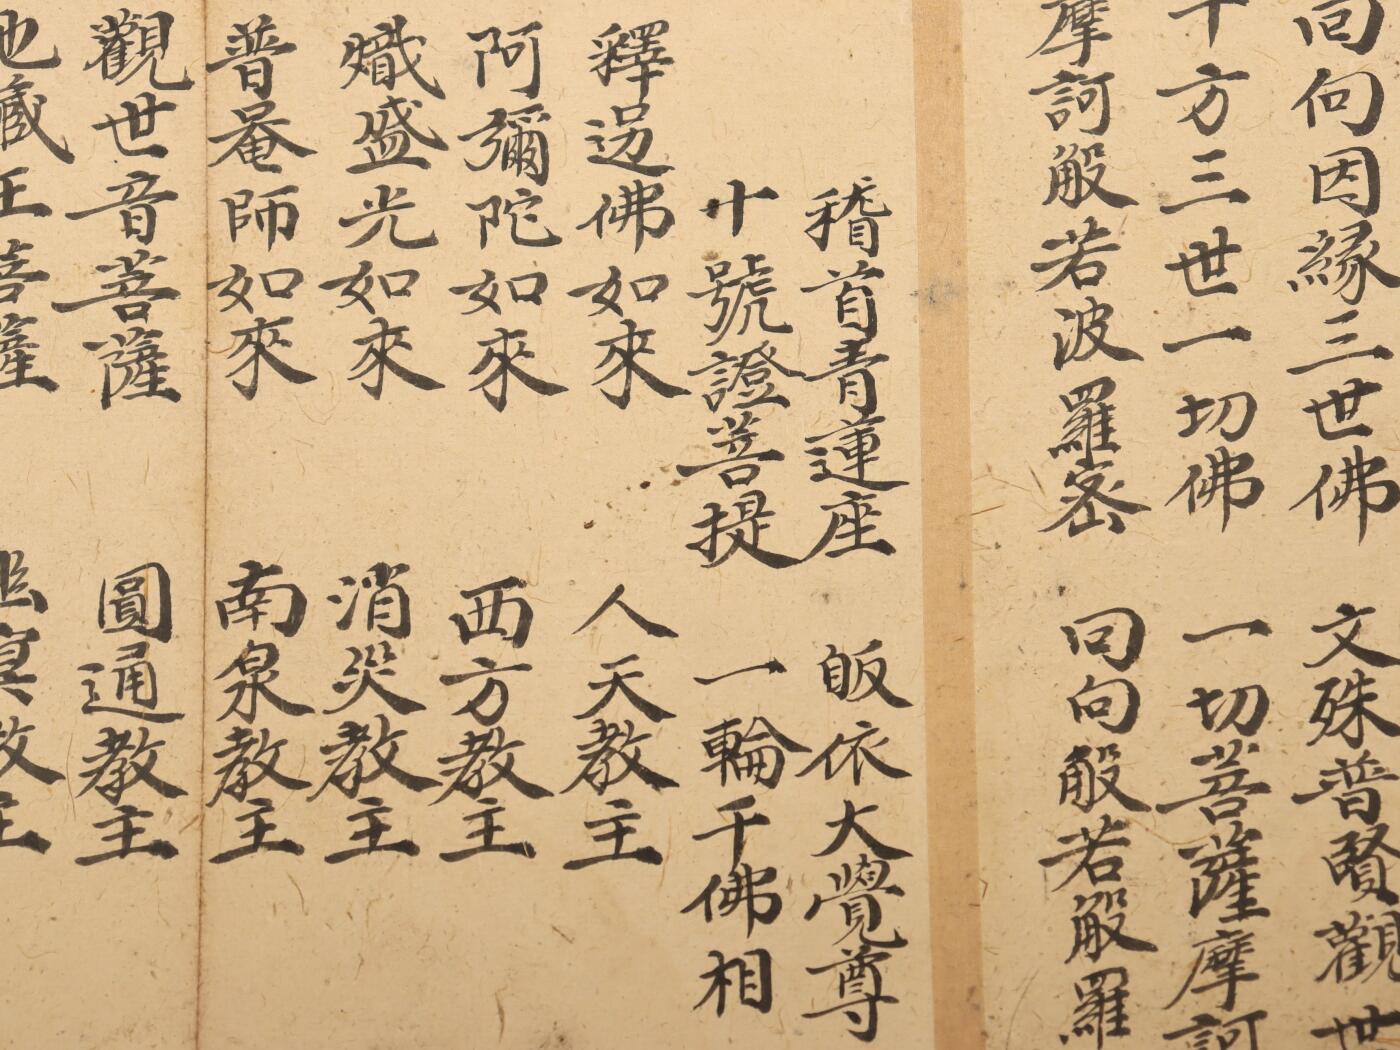 回向因緣三世佛 文殊普賢觀世
十方三世一切佛 一切菩薩摩訶
摩訶般若波羅密 回向般若般羅
稽首青蓮座 皈依大覺尊
十號證菩提 一輪千佛相
釋迦佛如來 人天教主
阿彌陀如來 西方教主
熾盛光如來 消災教主
普菴師如來 南泉教主
觀世音菩薩 圓通教主
地藏王菩薩 幽冥教主